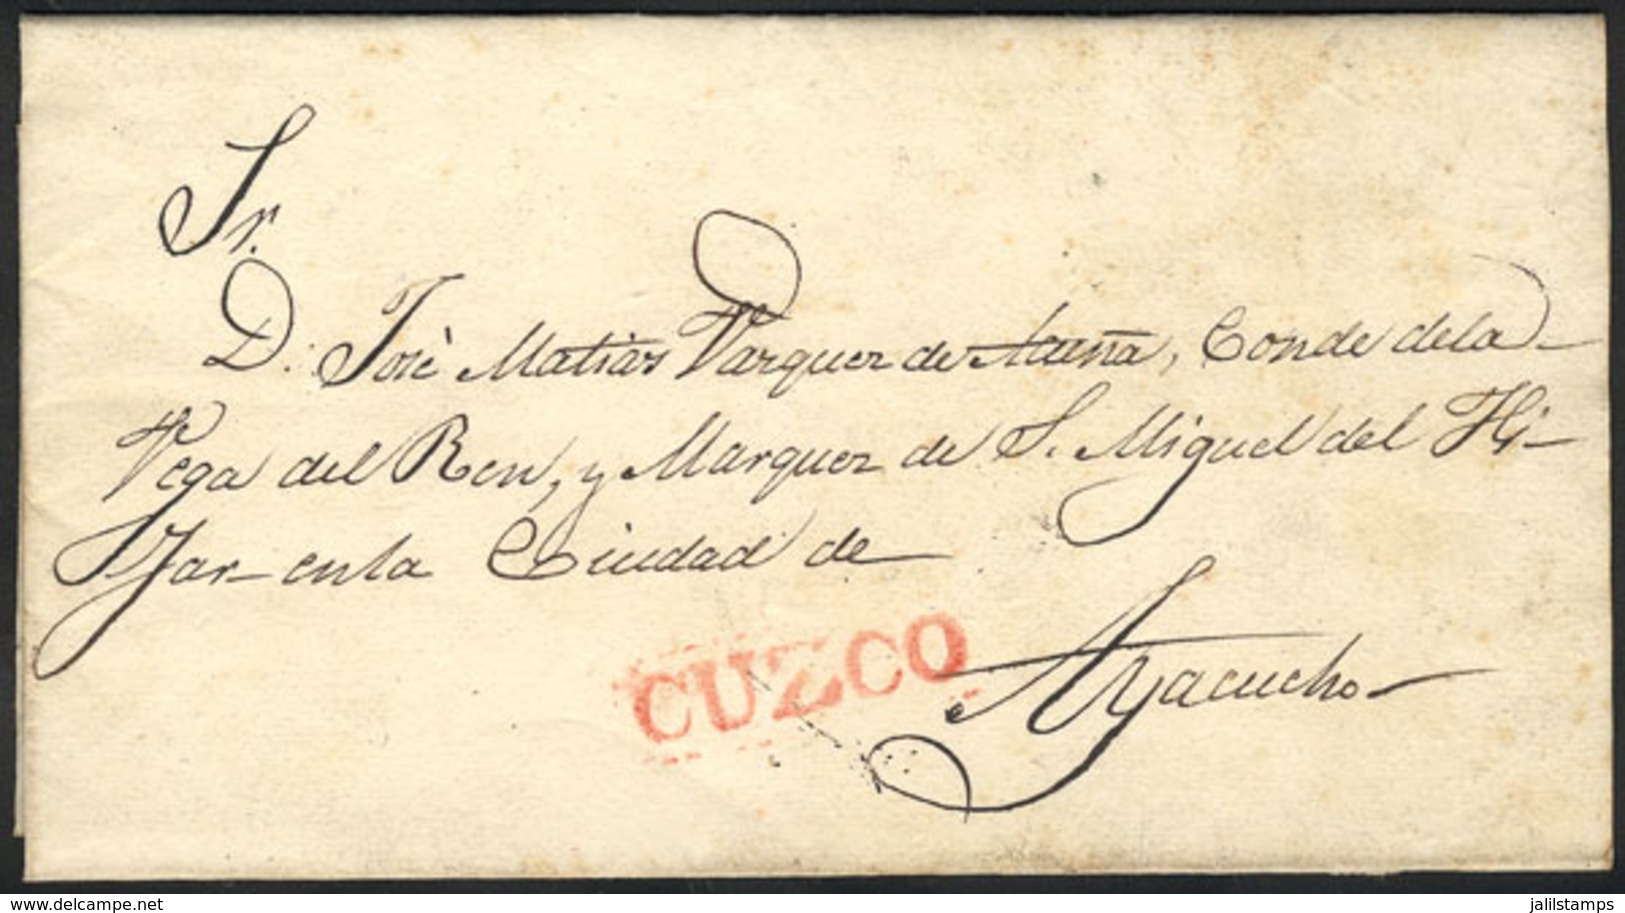 Sr.
D. José Matias Vazquez de Acuña, Conde de la
Vega del Ren, y Marquez de S. Miguel del Hi-
jar en la Ciudad de
CUZCO
Ayacucho
www.delcampe.net
jalilstamps